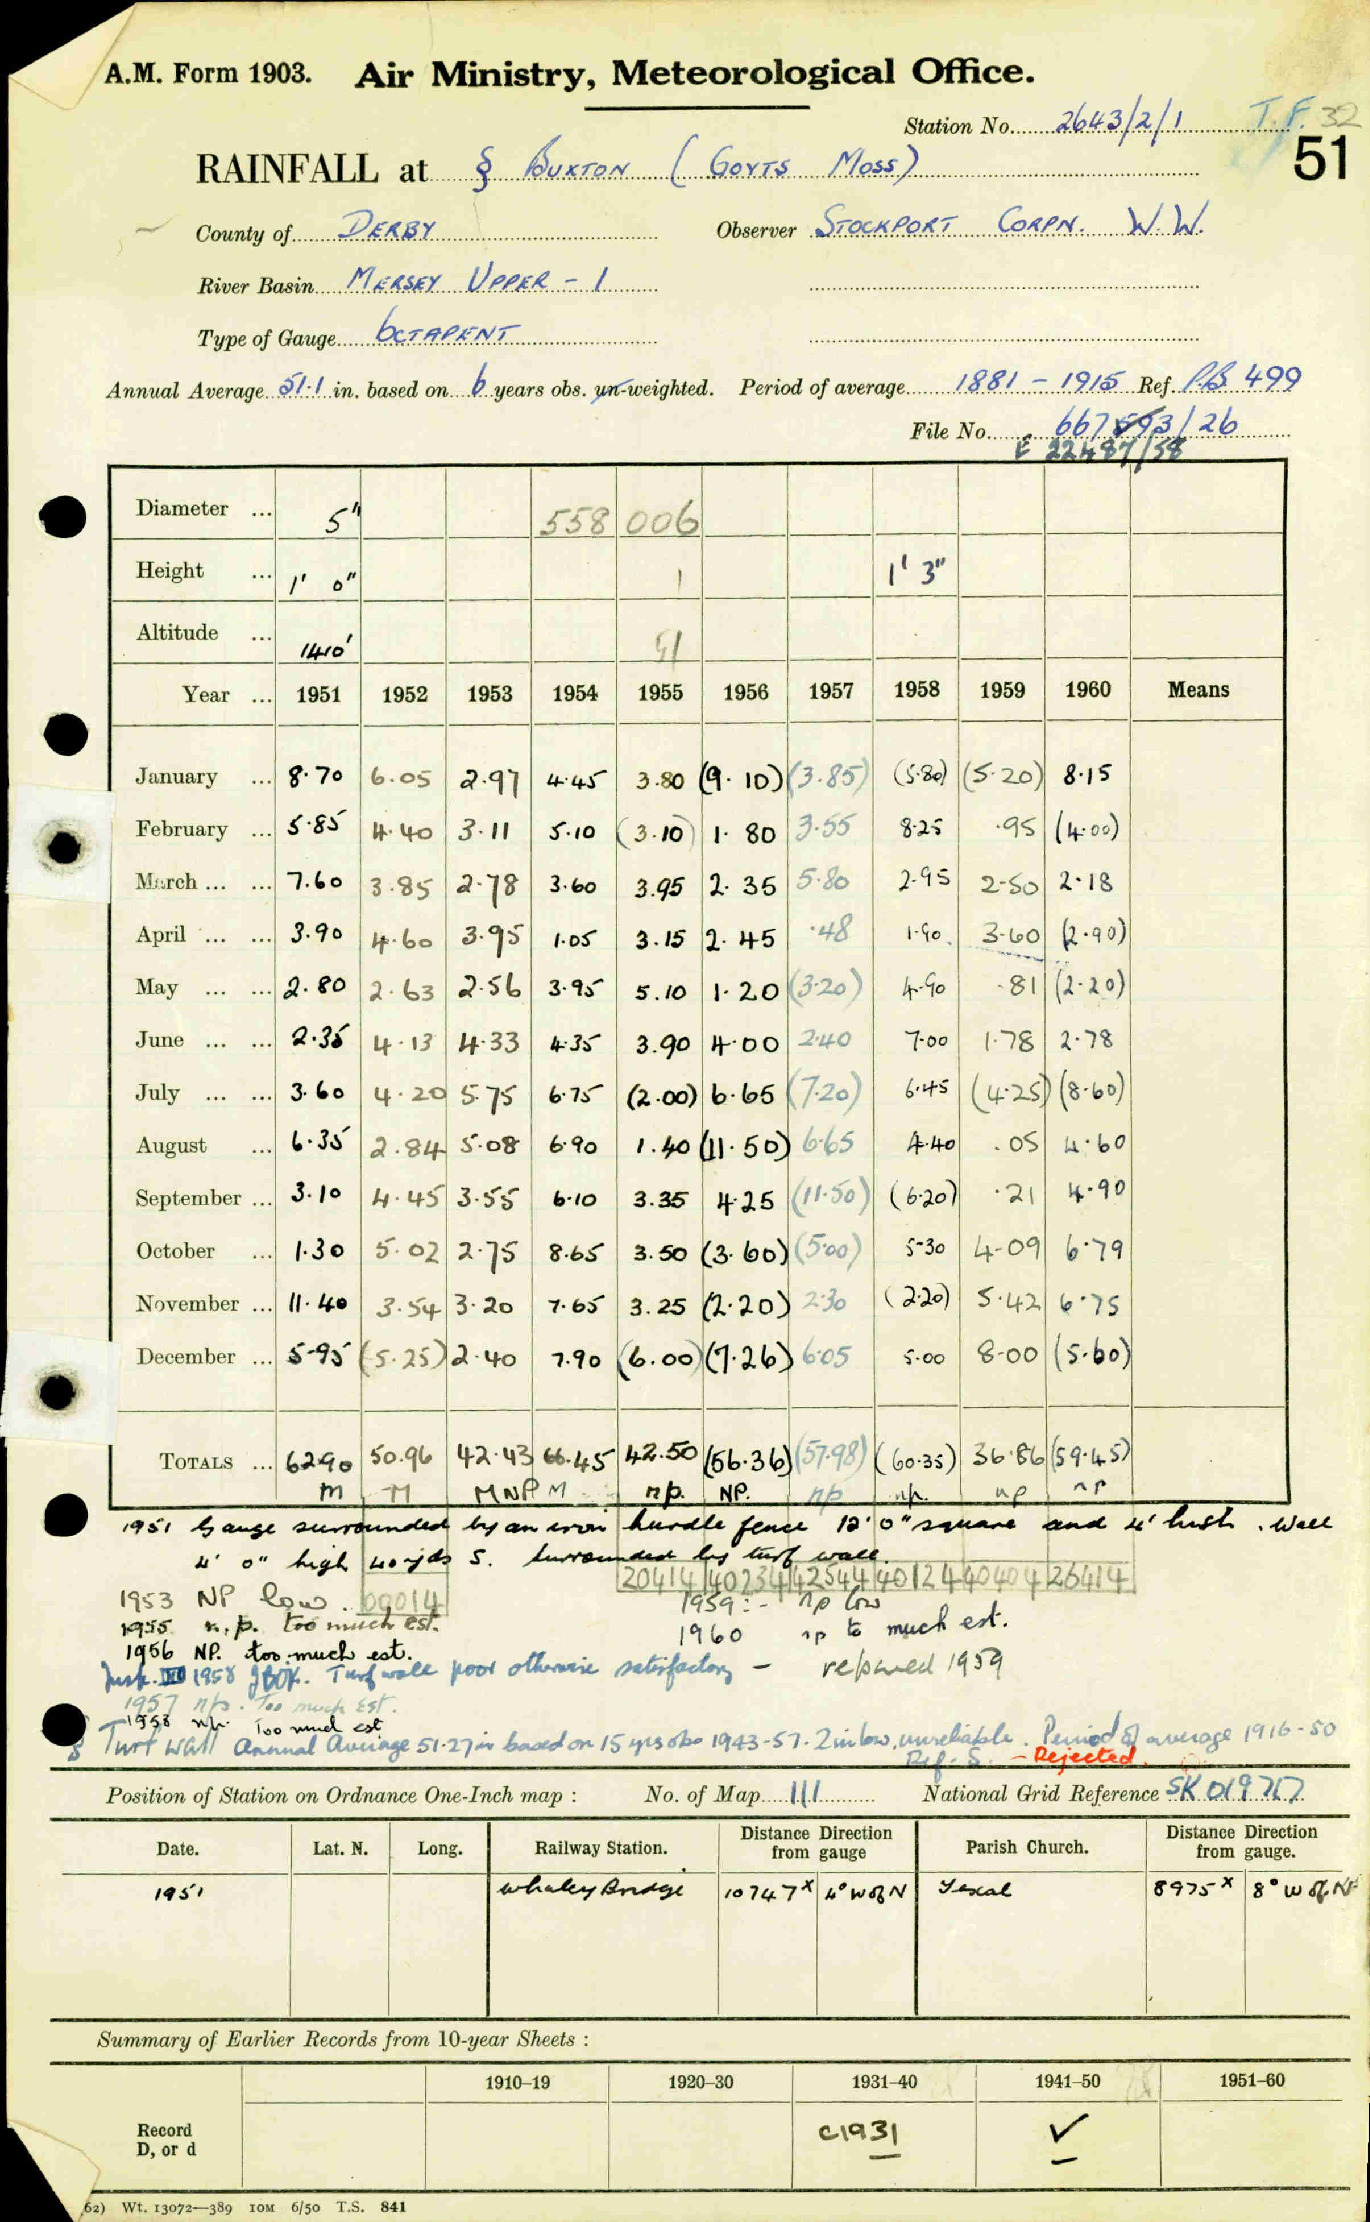 A.M. Form 1903. Air Ministry, Meteorological Office.
Station No. 2643/2/1 T.F. 32
51
RAINFALL at § BUXTON (GOYTS MOSS)
County of DERBY Observer STOCKPORT CORPN. W.W.
River Basin MERSEY UPPER - 1
Type of Gauge OCTAPENT
Annual Average 51.1 in. based on 6 years obs. un-weighted. Period of average 1881 - 1915 Ref. P.B 499
File No. 667593/26
E 22487/58
Diameter ... 5" 558 006
Height ... 1' 0" 1 1' 3"
Altitude ... 1410' 51
Year ... 1951 1952 1953 1954 1955 1956 1957 1958 1959 1960 Means
January ... 8.70 6.05 2.97 4.45 3.80 (9.10) (3.85) (5.80) (5.20) 8.15
February ... 5.85 4.40 3.11 5.10 (3.10) 1.80 3.55 8.25 .95 (4.00)
March ... ... 7.60 3.85 2.78 3.60 3.95 2.35 5.80 2.95 2.50 2.18
April ... ... 3.90 4.60 3.95 1.05 3.15 2.45 .48 1.90 3.60 (2.90)
May ... ... 2.80 2.63 2.56 3.95 5.10 1.20 (3.20) 4.90 .81 (2.20)
June ... ... 2.35 4.13 4.33 4.35 3.90 4.00 2.40 7.00 1.78 2.78
July ... ... 3.60 4.20 5.75 6.75 (2.00) 6.65 (7.20) 6.45 (4.25) (8.60)
August ... 6.35 2.84 5.08 6.90 1.40 (11.50) 6.65 4.40 .05 4.60
September ... 3.10 4.45 3.55 6.10 3.35 4.25 (11.50) (6.20) .21 4.90
October ... 1.30 5.02 2.75 8.65 3.50 (3.60) (5.00) 5.30 4.09 6.79
November ... 11.40 3.54 3.20 7.65 3.25 (2.20) 2.30 (2.20) 5.42 6.75
December ... 5.95 (5.25) 2.40 7.90 (6.00) (7.26) 6.05 5.00 8.00 (5.60)
TOTALS ... 62.90 50.96 42.43 66.45 42.50 (56.36) (57.98) (60.35) 36.86 (59.45)
m M M NP M np. NP. np np. np np
1951 Gauge surrounded by an iron hurdle fence 12' 0" square and 4' high. Wall
4' 0" high 40 yds S. Surrounded by turf wall.
20414 40234 42544 40124 40404 26414
1953 NP low. 00014 1959:- np low
1955 n.p. too much est. 1960 np to much est.
1956 NP. too much est.
Insp. 1958 Turf wall poor otherwise satisfactory - repaired 1959
1957 np. Too much Est.
1958 np. Too much est
§ Turf Wall Annual Average 51.27in based on 15 yrs obs 1943-57. 2 in low, unreliable. Period of average 1916-50
Ref. S. - Rejected.
Position of Station on Ordnance One-Inch map : No. of Map 111 National Grid Reference SK 019717
Date. Lat. N. Long. Railway Station. Distance Direction from gauge Parish Church. Distance Direction from gauge.
1951 Whaley Bridge 10747x 4° W of N Taxal 8975x 8° W of N
Summary of Earlier Records from 10-year Sheets :
1910–19 1920–30 1931–40 1941–50 1951–60
Record
D, or d
c1931 ✓
62) Wt. 13072—389 10M 6/50 T.S. 841